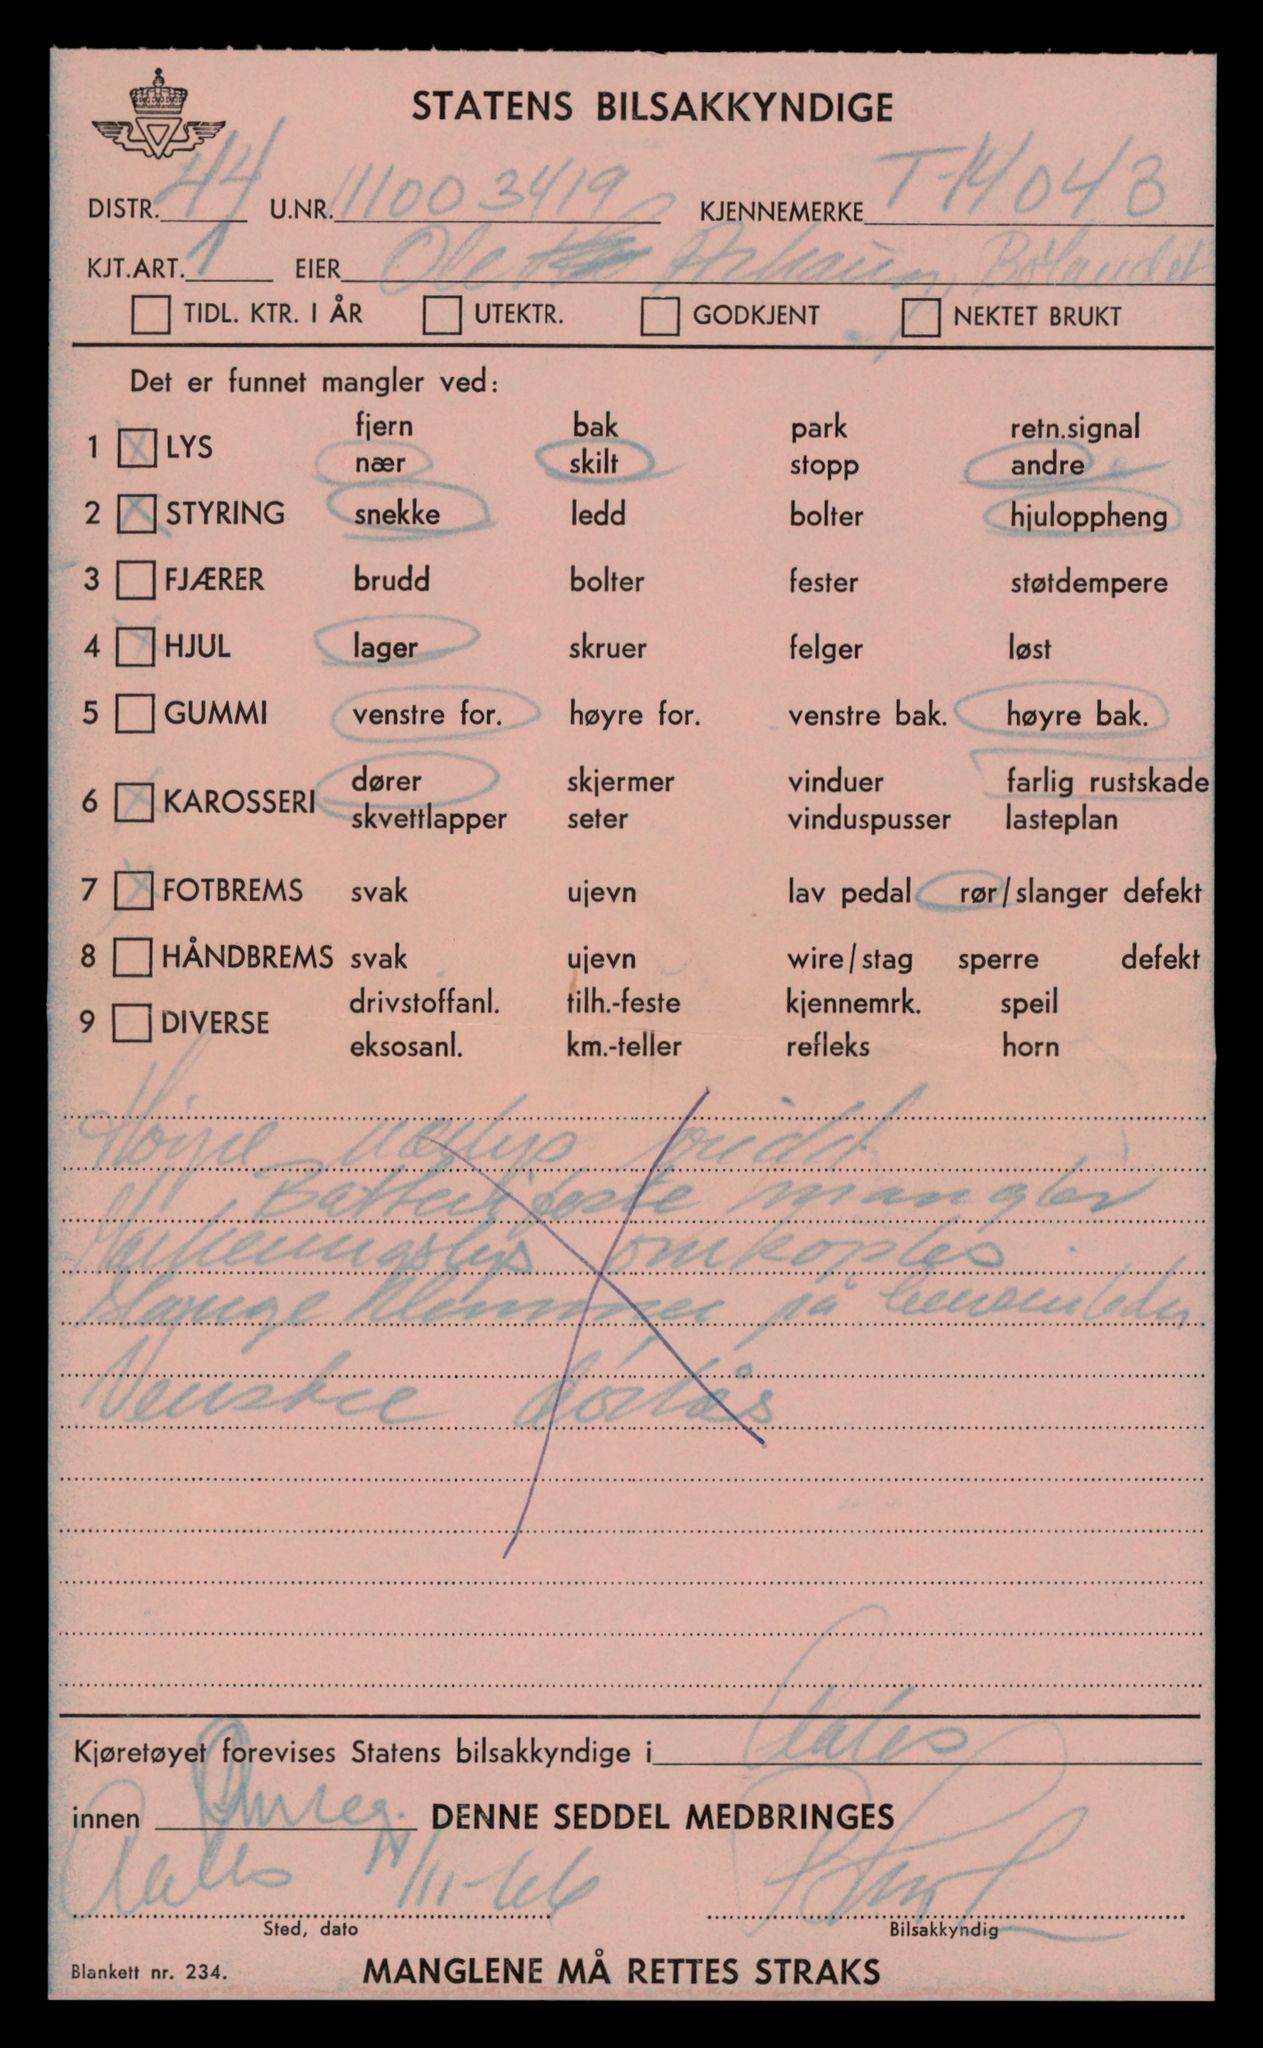 STATENS BILSAKKYNDIGE
DISTR. 44 U.NR. 111003419 KJENNEMERKE T-14043
KJT.ART. 1 EIER Ole Bølandet
TIDL. KTR. I ÅR UTEKTR. GODKJENT NEKTET BRUKT
Det er funnet mangler ved:
1 LYS fjern bak park retn.signal
nær skilt stopp andre
2 STYRING snekke ledd bolter hjuloppheng
3 FJÆRER brudd bolter fester støtdempere
4 HJUL lager skruer felger løst
5 GUMMI venstre for. høyre for. venstre bak. høyre bak.
6 KAROSSERI dører skjermer vinduer farlig rustskade
skvettlapper seter vinduspusser lasteplan
7 FOTBREMS svak ujevn lav pedal rør/slanger defekt
8 HÅNDBREMS svak ujevn wire/stag sperre defekt
9 DIVERSE drivstoffanl. tilh.-feste kjennemrk. speil
eksosanl. km.-teller refleks horn
Høyre nærlys
Batterifeste mangler
Parkeringslys omkoples.
Slange klemmer på
Venstre dørlås
Kjøretøyet forevises Statens bilsakkyndige i
innen Omreg. DENNE SEDDEL MEDBRINGES
/III-66
Sted, dato Bilsakkyndig
Blankett nr. 234. MANGLENE MÅ RETTES STRAKS